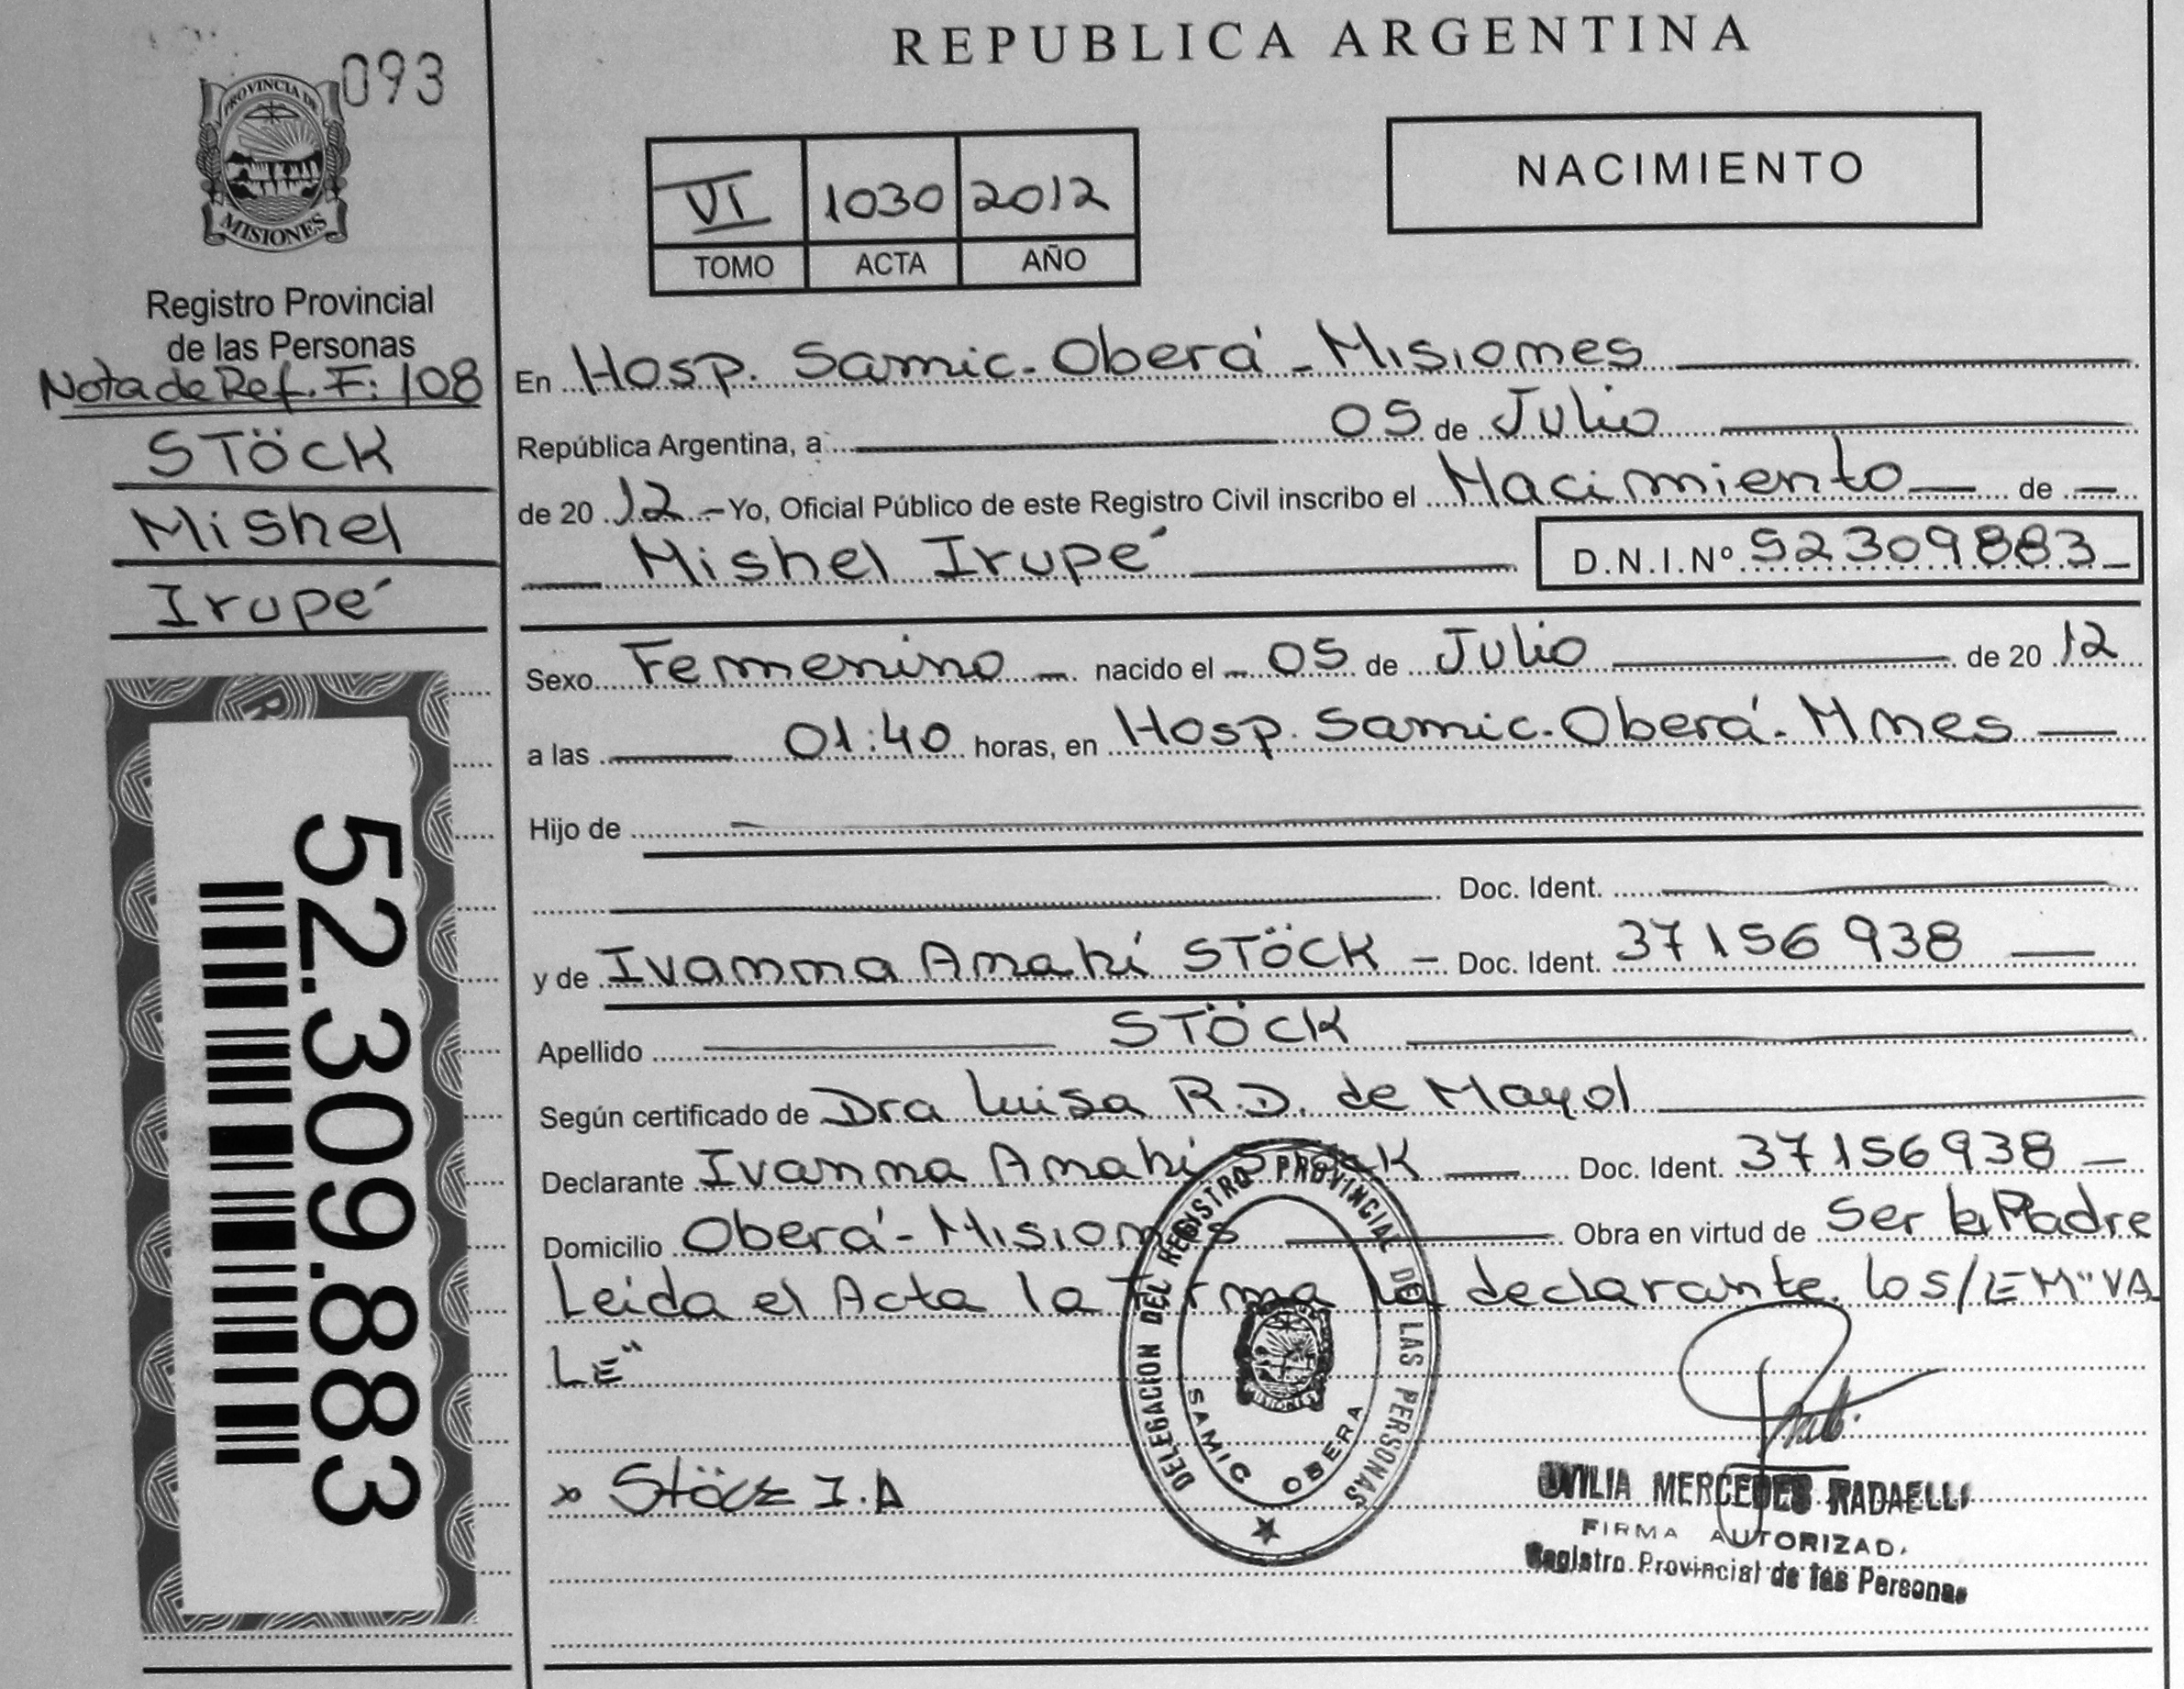 093
PROVINCIA DE
MISIONES
Registro Provincial
de las Personas
Nota de Ref. F: 108
STÖCK
Mishel
Irupé
52.309.883
REPUBLICA ARGENTINA
VI 1030 2012
TOMO ACTA AÑO
NACIMIENTO
En Hosp. Samic - Oberá - Misiones
República Argentina, a 05 de Julio
de 20 12 - Yo, Oficial Público de este Registro Civil inscribo el Nacimiento de
Mishel Irupé D.N.I.Nº 52309883
Sexo Femenino nacido el 05 de Julio de 20 12
a las 01:40 horas, en Hosp. Samic - Oberá - Mnes
Hijo de
Doc. Ident.
y de Ivanna Anahí STÖCK - Doc. Ident. 37156938
Apellido STÖCK
Según certificado de Dra Luisa R.D. de Mayol
Declarante Ivanna Anahí Stöck Doc. Ident. 37156938
Domicilio Oberá - Misiones Obra en virtud de Ser la Madre
Leida el Acta la Firma la declarante. lo s/ EM "VA
LE"
x Stöck I.A
DELEGACION DEL REGISTRO PROVINCIAL DE LAS PERSONAS
SAMIC OBERA
MERCEDES RADAELLI
FIRMA AUTORIZAD.
Registro Provincial de las Personas